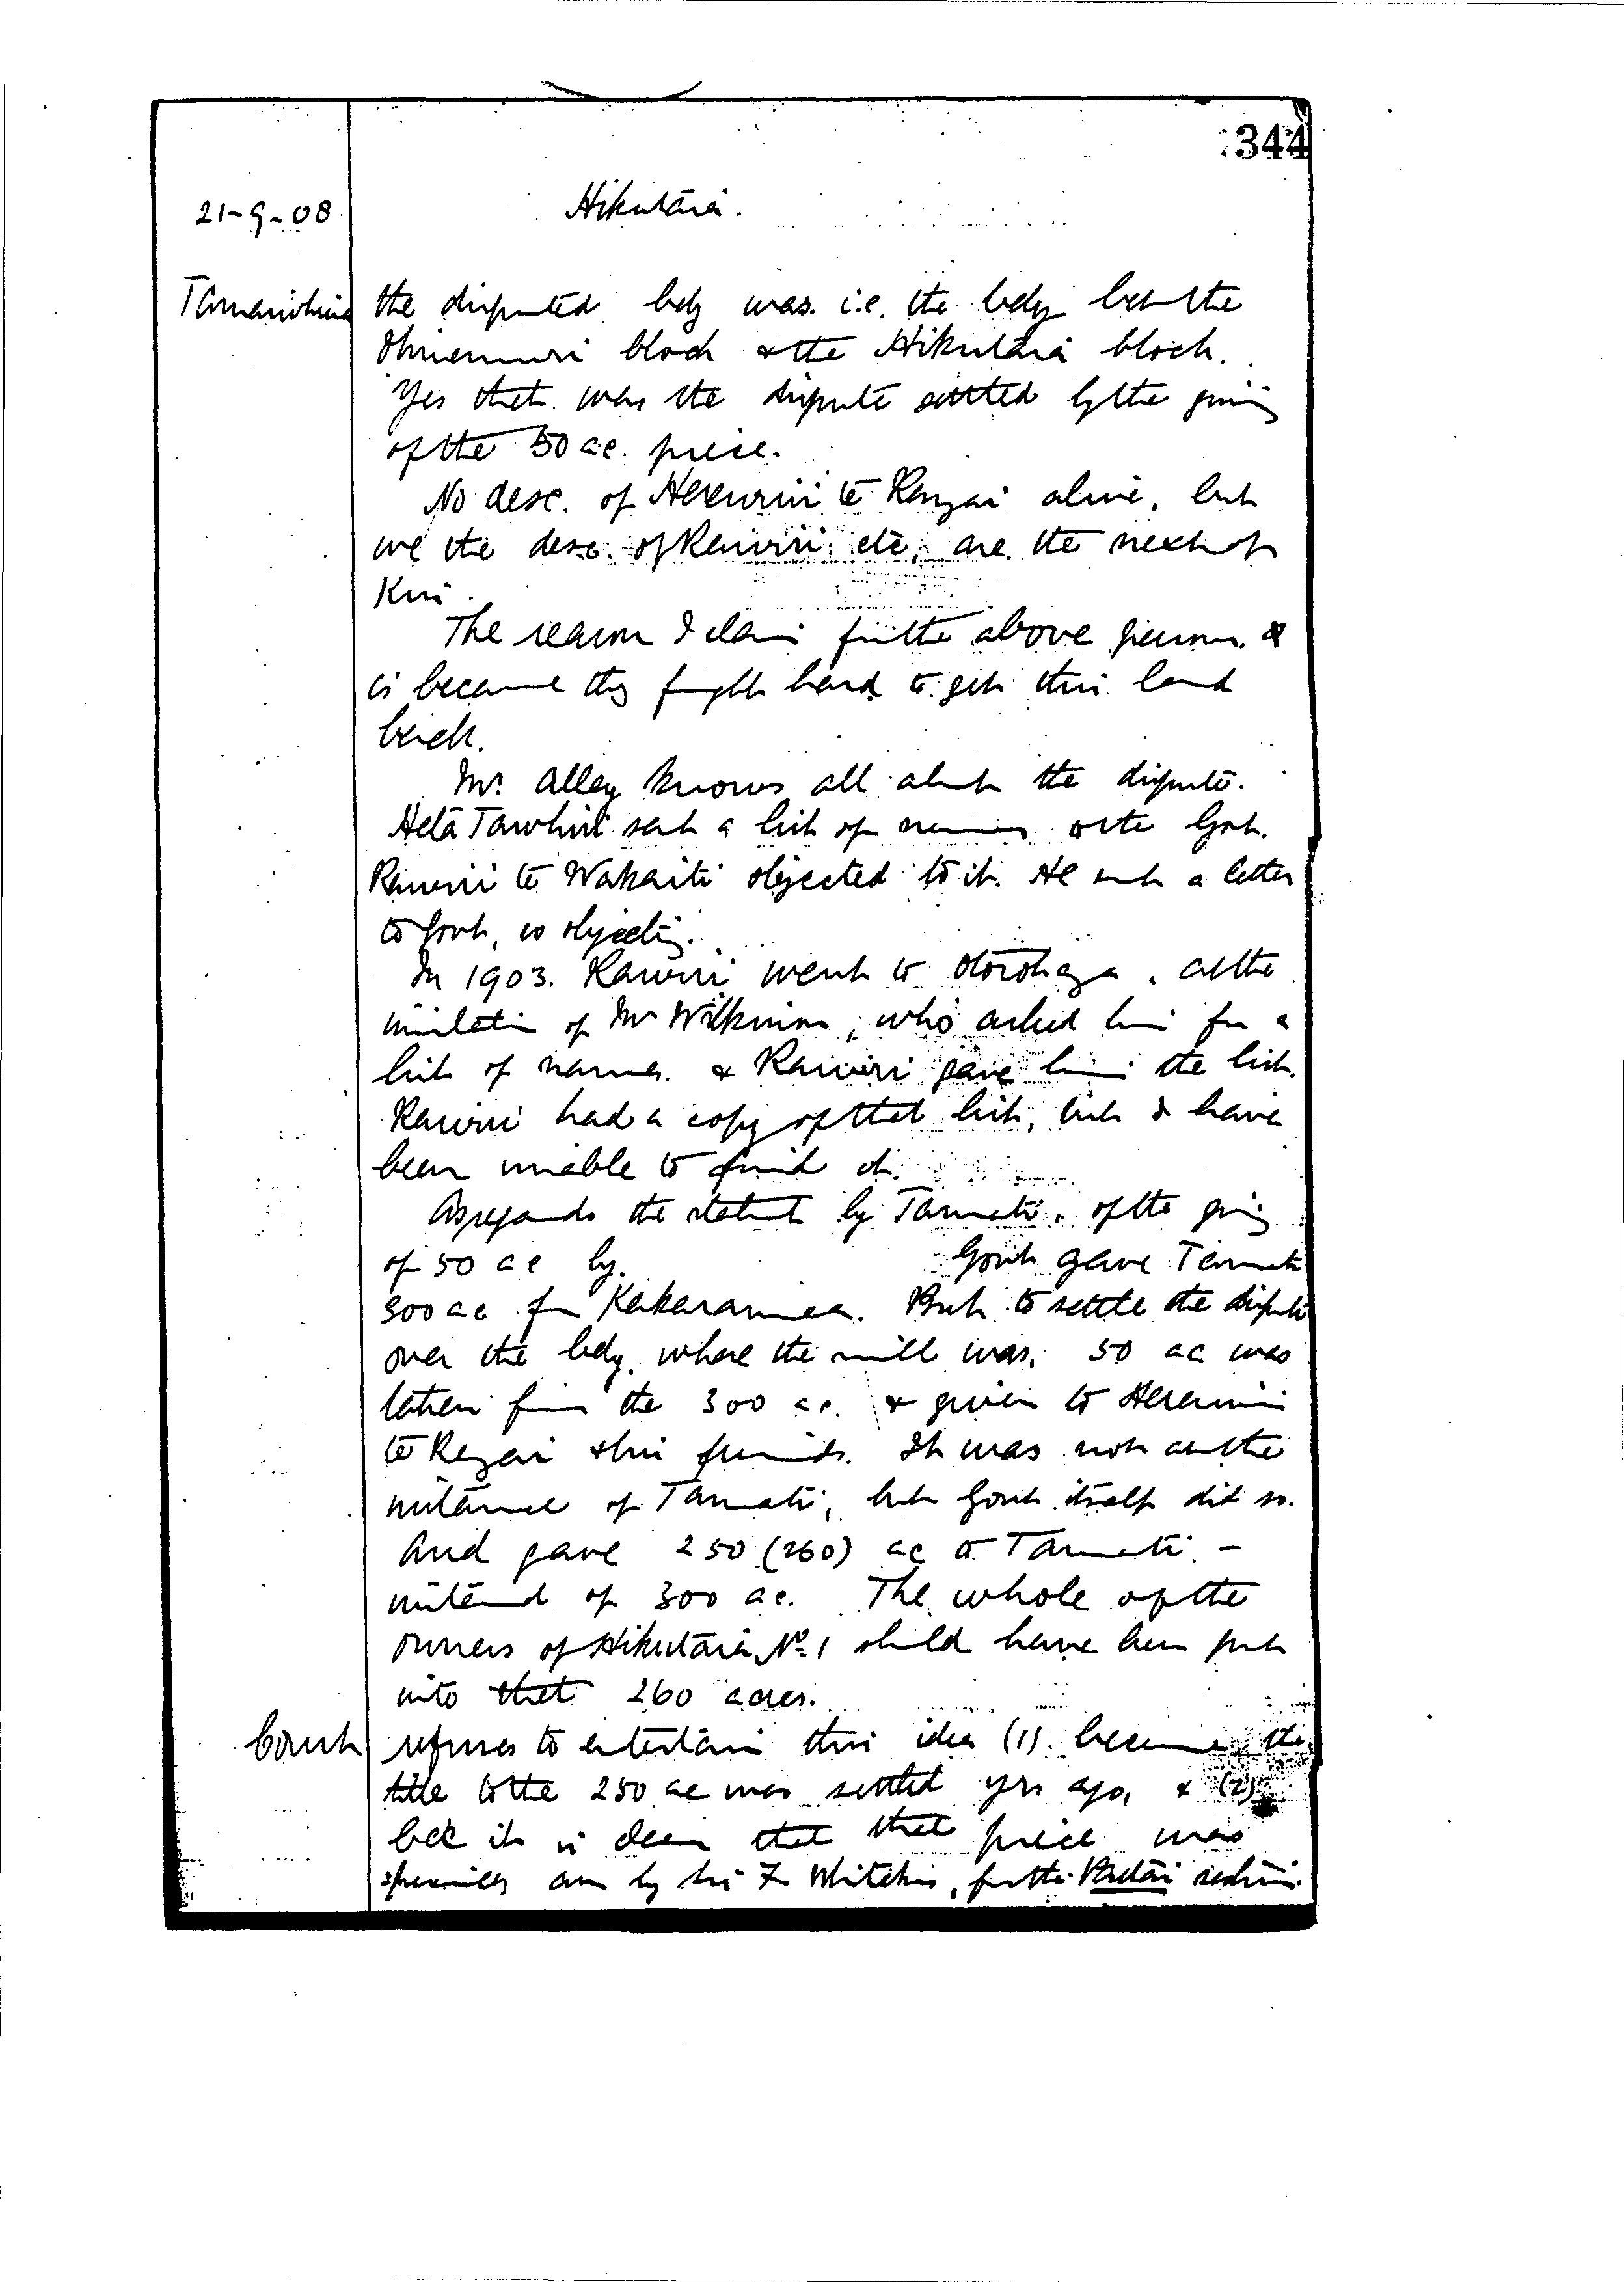 344
21-9-08
Hikutaia.
the disputed bdy was. i.e. the bdy bet the
Ohinemuri block & the Hikutaia block.
Yes that was the dispute settled by the giving
of the 50 ac. piece.
No desc. of Hereurini te Rangai alive, but
we the desc. of Rawiri etc, are the next of
Kin.
The reason I claim for the above persons
is because they fought hard to get this land
back.
Mr. Alley knows all abt the dispute.
Heta Tawhiri sent a list of names to the Govt.
Rawiri te Wakaiti objected to it. He sent a letter
to Govt, so objecting.
In 1903. Rawiri went to Otorohaga, at the
invitation of Mr Wilkinson, who asked him for a
list of names. & Rawiri gave him the list.
Rawiri had a copy of that list, but I have
been unable to find it.
As regards the statmt by Tamati, of the giving
of 50 ac by. Govt gave Tamati
300 ac for Kakaramea. But to settle the dispute
over the bdy. where the mill was, 50 ac was
taken from the 300 ac. & given to
te Regai & his friends. It was not at the
instance of Tamati, but Govt itself did so.
And gave 250 (260) ac to Tamati. -
instead of 300 ac. The whole of the
owners of Hikutaia No. 1 should have been put
into that 260 acres.
Court refuses to entertain this idea (1). because the
title to the 250 ac was settled yrs ago, & (2)
bec it is clear that that piece was
by Sir F Whitaker, for the